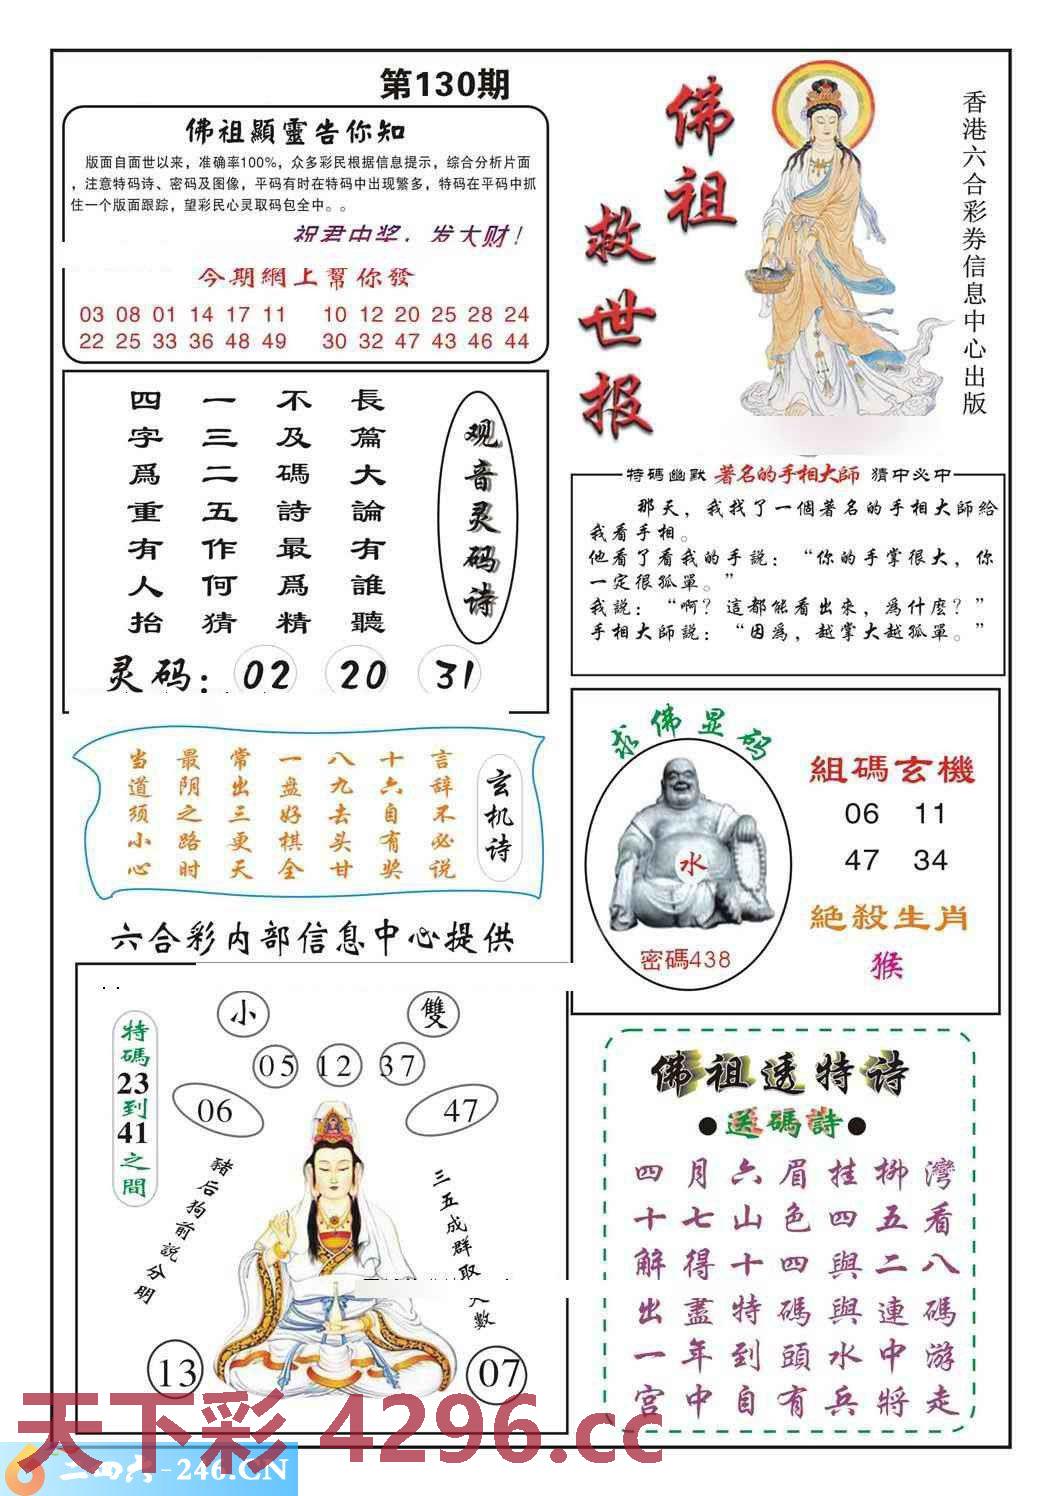 第130期
佛祖顯靈告你知
版面自面世以来，准确率100%，众多彩民根据信息提示，综合分析片面
，注意特码诗、密码及图像，平码有时在特码中出现繁多，特码在平码中抓
住一个版面跟踪，望彩民心灵取码包全中。。
祝君中奖，发大财！
今期網上幫你發
03 08 01 14 17 11 10 12 20 25 28 24
22 25 33 36 48 49 30 32 47 43 46 44
佛祖
救世报
香港六合彩券信息中心出版
观音灵码诗
長篇大論有誰聽
不及碼詩最爲精
一三二五作何猜
四字爲重有人抬
灵码：02 20 31
特碼幽默 著名的手相大師 猜中必中
那天，我找了一個著名的手相大師給
我看手相。
他看了看我的手説：“你的手掌很大，你
一定很孤單。”
我説：“啊？這都能看出來，爲什麽？”
手相大師説：“因爲，越掌大越孤單。”
玄机诗
言辞不必说
十六自有奖
八九去头甘
一盘好棋全
常出三更天
最阴之路时
当道须小心
求佛显码
水
密碼438
組碼玄機
06 11
47 34
絕殺生肖
猴
六合彩内部信息中心提供
特碼23到41之間
小 雙
05 12 37
06 47
豬后狗前説分明
三五成群取
數
13 07
佛祖透特诗
●送碼詩●
四月六眉挂柳灣
十七山色四五看
解得十四與二八
出盡特碼與連碼
一年到頭水中游
宫中自有兵將走
天下彩 4296.cc
二四六-246.CN